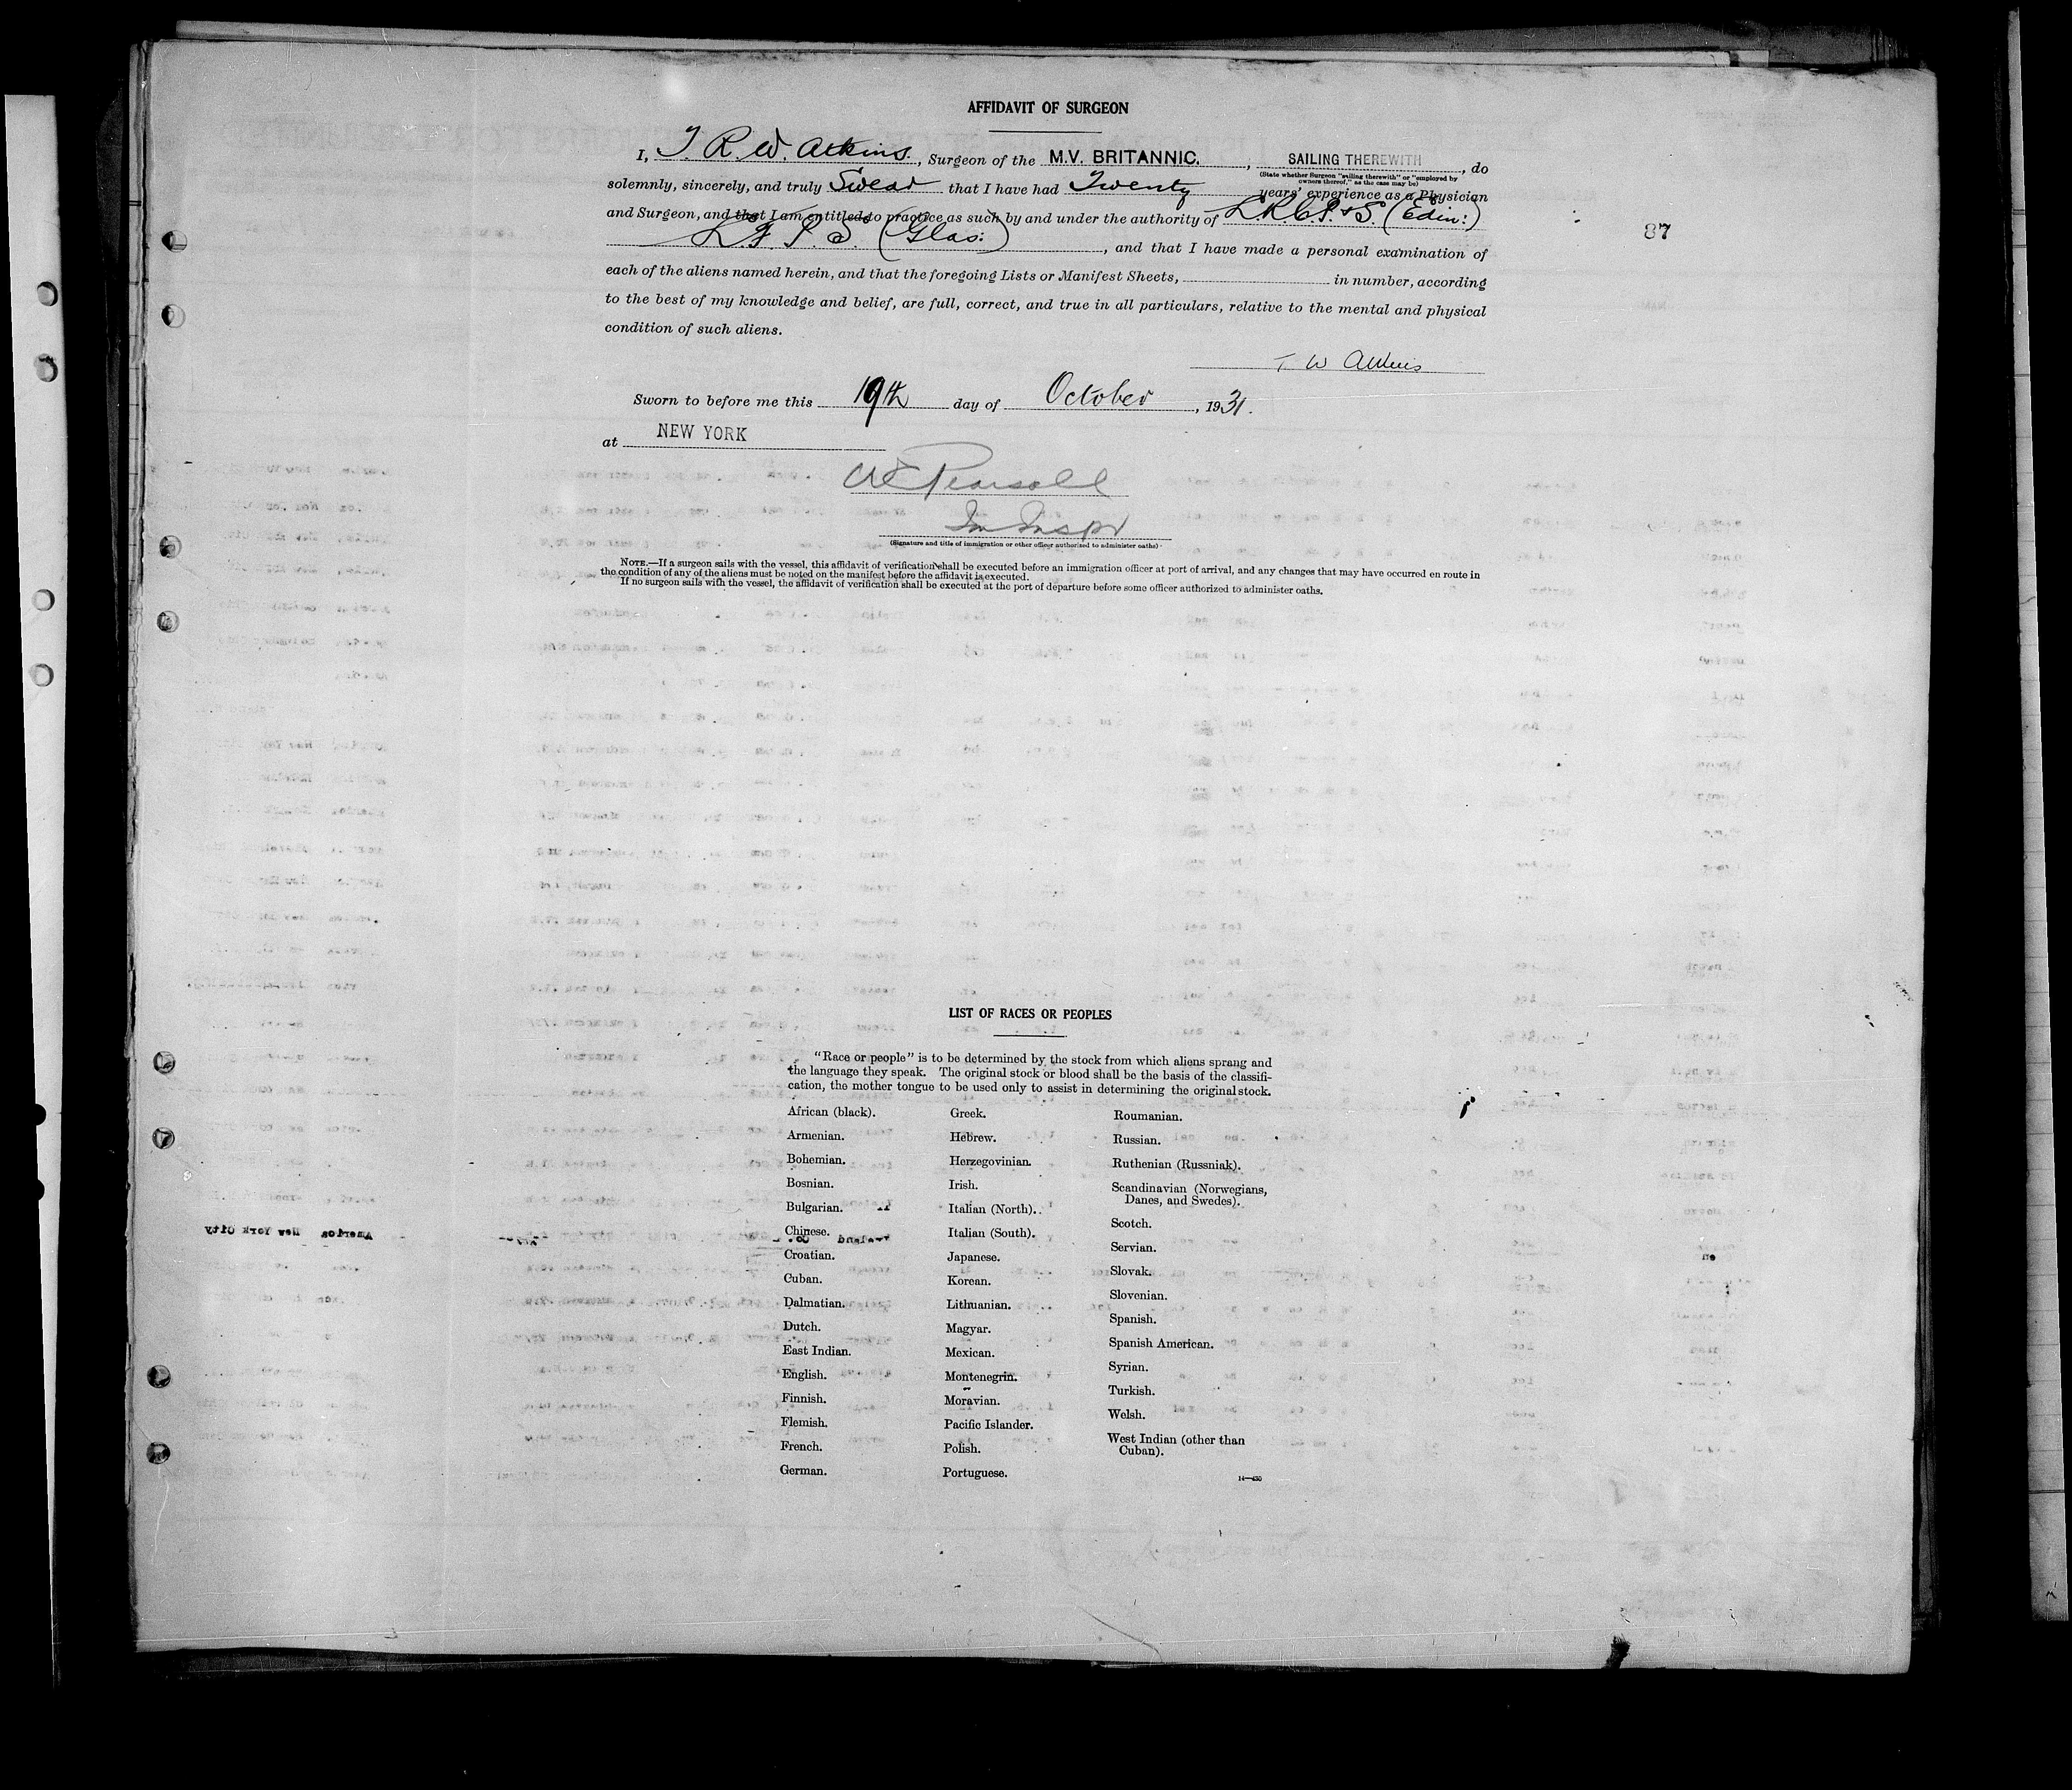 AFFIDAVIT OF SURGEON
I, T. R. W. Atkins., Surgeon of the M.V. BRITANNIC., SAILING THEREWITH, do
(State whether Surgeon "sailing therewith" or "employed by
owners thereof," as the case may be)
solemnly, sincerely, and truly Swear that I have had Twenty years' experience as a Physician
and Surgeon, and that I am entitled to practice as such by and under the authority of L.R.C.P. & S. (Edin:)
87
L.F.P.S. (Glas:), and that I have made a personal examination of
each of the aliens named herein, and that the foregoing Lists or Manifest Sheets, in number, according
to the best of my knowledge and belief, are full, correct, and true in all particulars, relative to the mental and physical
condition of such aliens.
T W Atkins
Sworn to before me this 19th day of October, 1931.
at NEW YORK
Pearsall
Im Inspr
(Signature and title of immigration or other officer authorized to administer oaths)
NOTE.—If a surgeon sails with the vessel, this affidavit of verification shall be executed before an immigration officer at port of arrival, and any changes that may have occurred en route in
the condition of any of the aliens must be noted on the manifest before the affidavit is executed.
If no surgeon sails with the vessel, the affidavit of verification shall be executed at the port of departure before some officer authorized to administer oaths.
LIST OF RACES OR PEOPLES
"Race or people" is to be determined by the stock from which aliens sprang and
the language they speak. The original stock or blood shall be the basis of the classifi-
cation, the mother tongue to be used only to assist in determining the original stock.
African (black).
Armenian.
Bohemian.
Bosnian.
Bulgarian.
Chinese.
Croatian.
Cuban.
Dalmatian.
Dutch.
East Indian.
English.
Finnish.
Flemish.
French.
German.
Greek.
Hebrew.
Herzegovinian.
Irish.
Italian (North).
Italian (South).
Japanese.
Korean.
Lithuanian.
Magyar.
Mexican.
Montenegrin.
Moravian.
Pacific Islander.
Polish.
Portuguese.
Roumanian.
Russian.
Ruthenian (Russniak).
Scandinavian (Norwegians,
Danes, and Swedes).
Scotch.
Servian.
Slovak.
Slovenian.
Spanish.
Spanish American.
Syrian.
Turkish.
Welsh.
West Indian (other than
Cuban).
America New York City